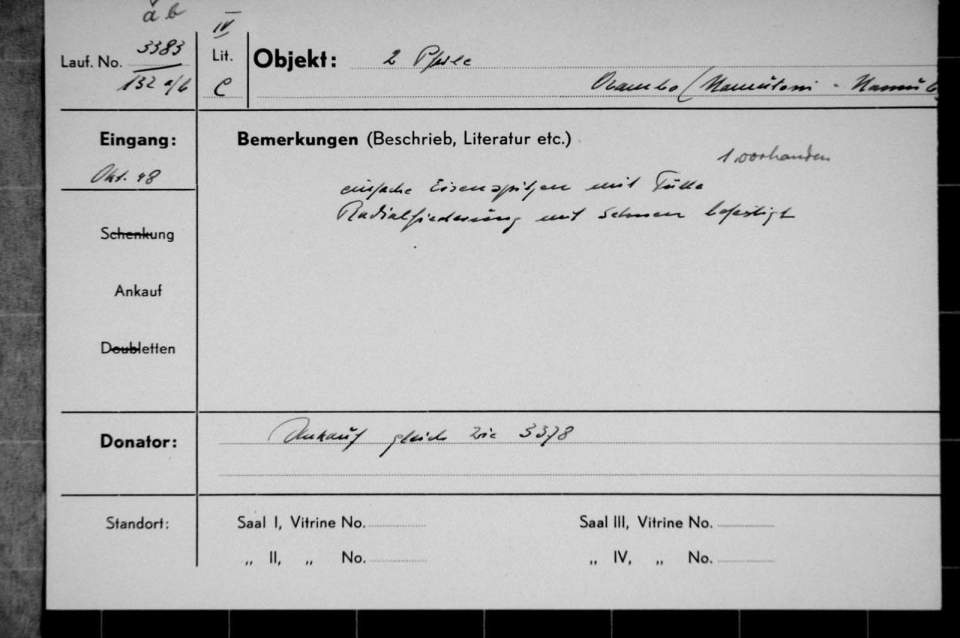 a b
IV
Lauf. No. 3383
132 a/b
Lit.
C
Objekt: 2 Pfeile
Ovambo (Namutoni -
Eingang:
Okt. 48
Bemerkungen (Beschrieb, Literatur etc.)
1 vorhanden
einfache Eisenspitzen mit Tülle
Radialfiederung mit Sehnen befestigt
Schenkung
Ankauf
Doubletten
Donator: Ankauf gleich wie 3378
Standort:
Saal I, Vitrine No.
Saal III, Vitrine No.
„ II, „ No.
„ IV, „ No.